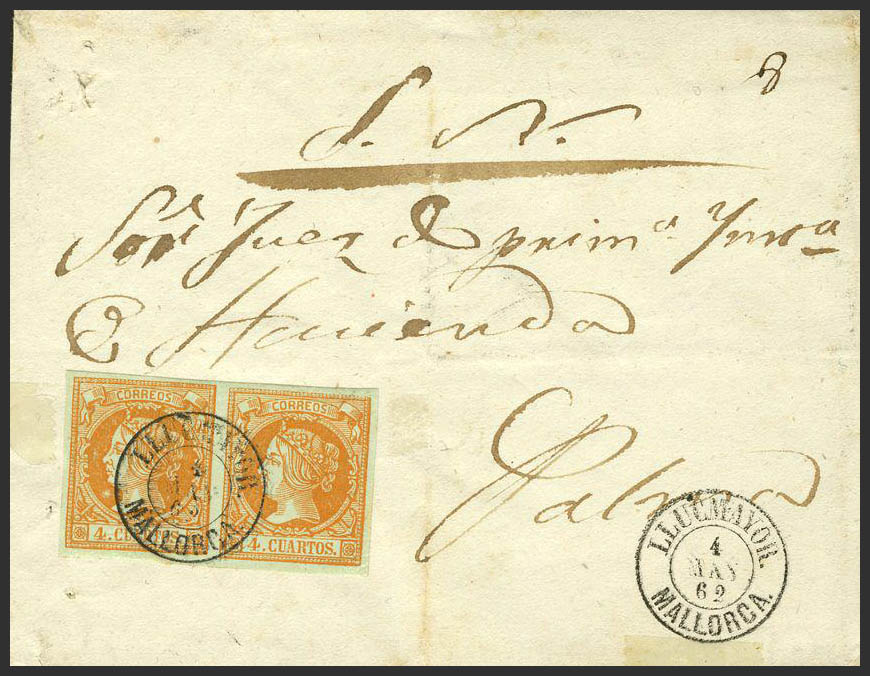 8
S. N.
Sor. Juez de prima. Ynsa
de Hacienda
Palma
CORREOS
4. CUARTOS.
CORREOS
4. CUARTOS.
LLUCMAYOR.
4
MAY
62
MALLORCA.
LLUCMAYOR.
4
MAY
62
MALLORCA.